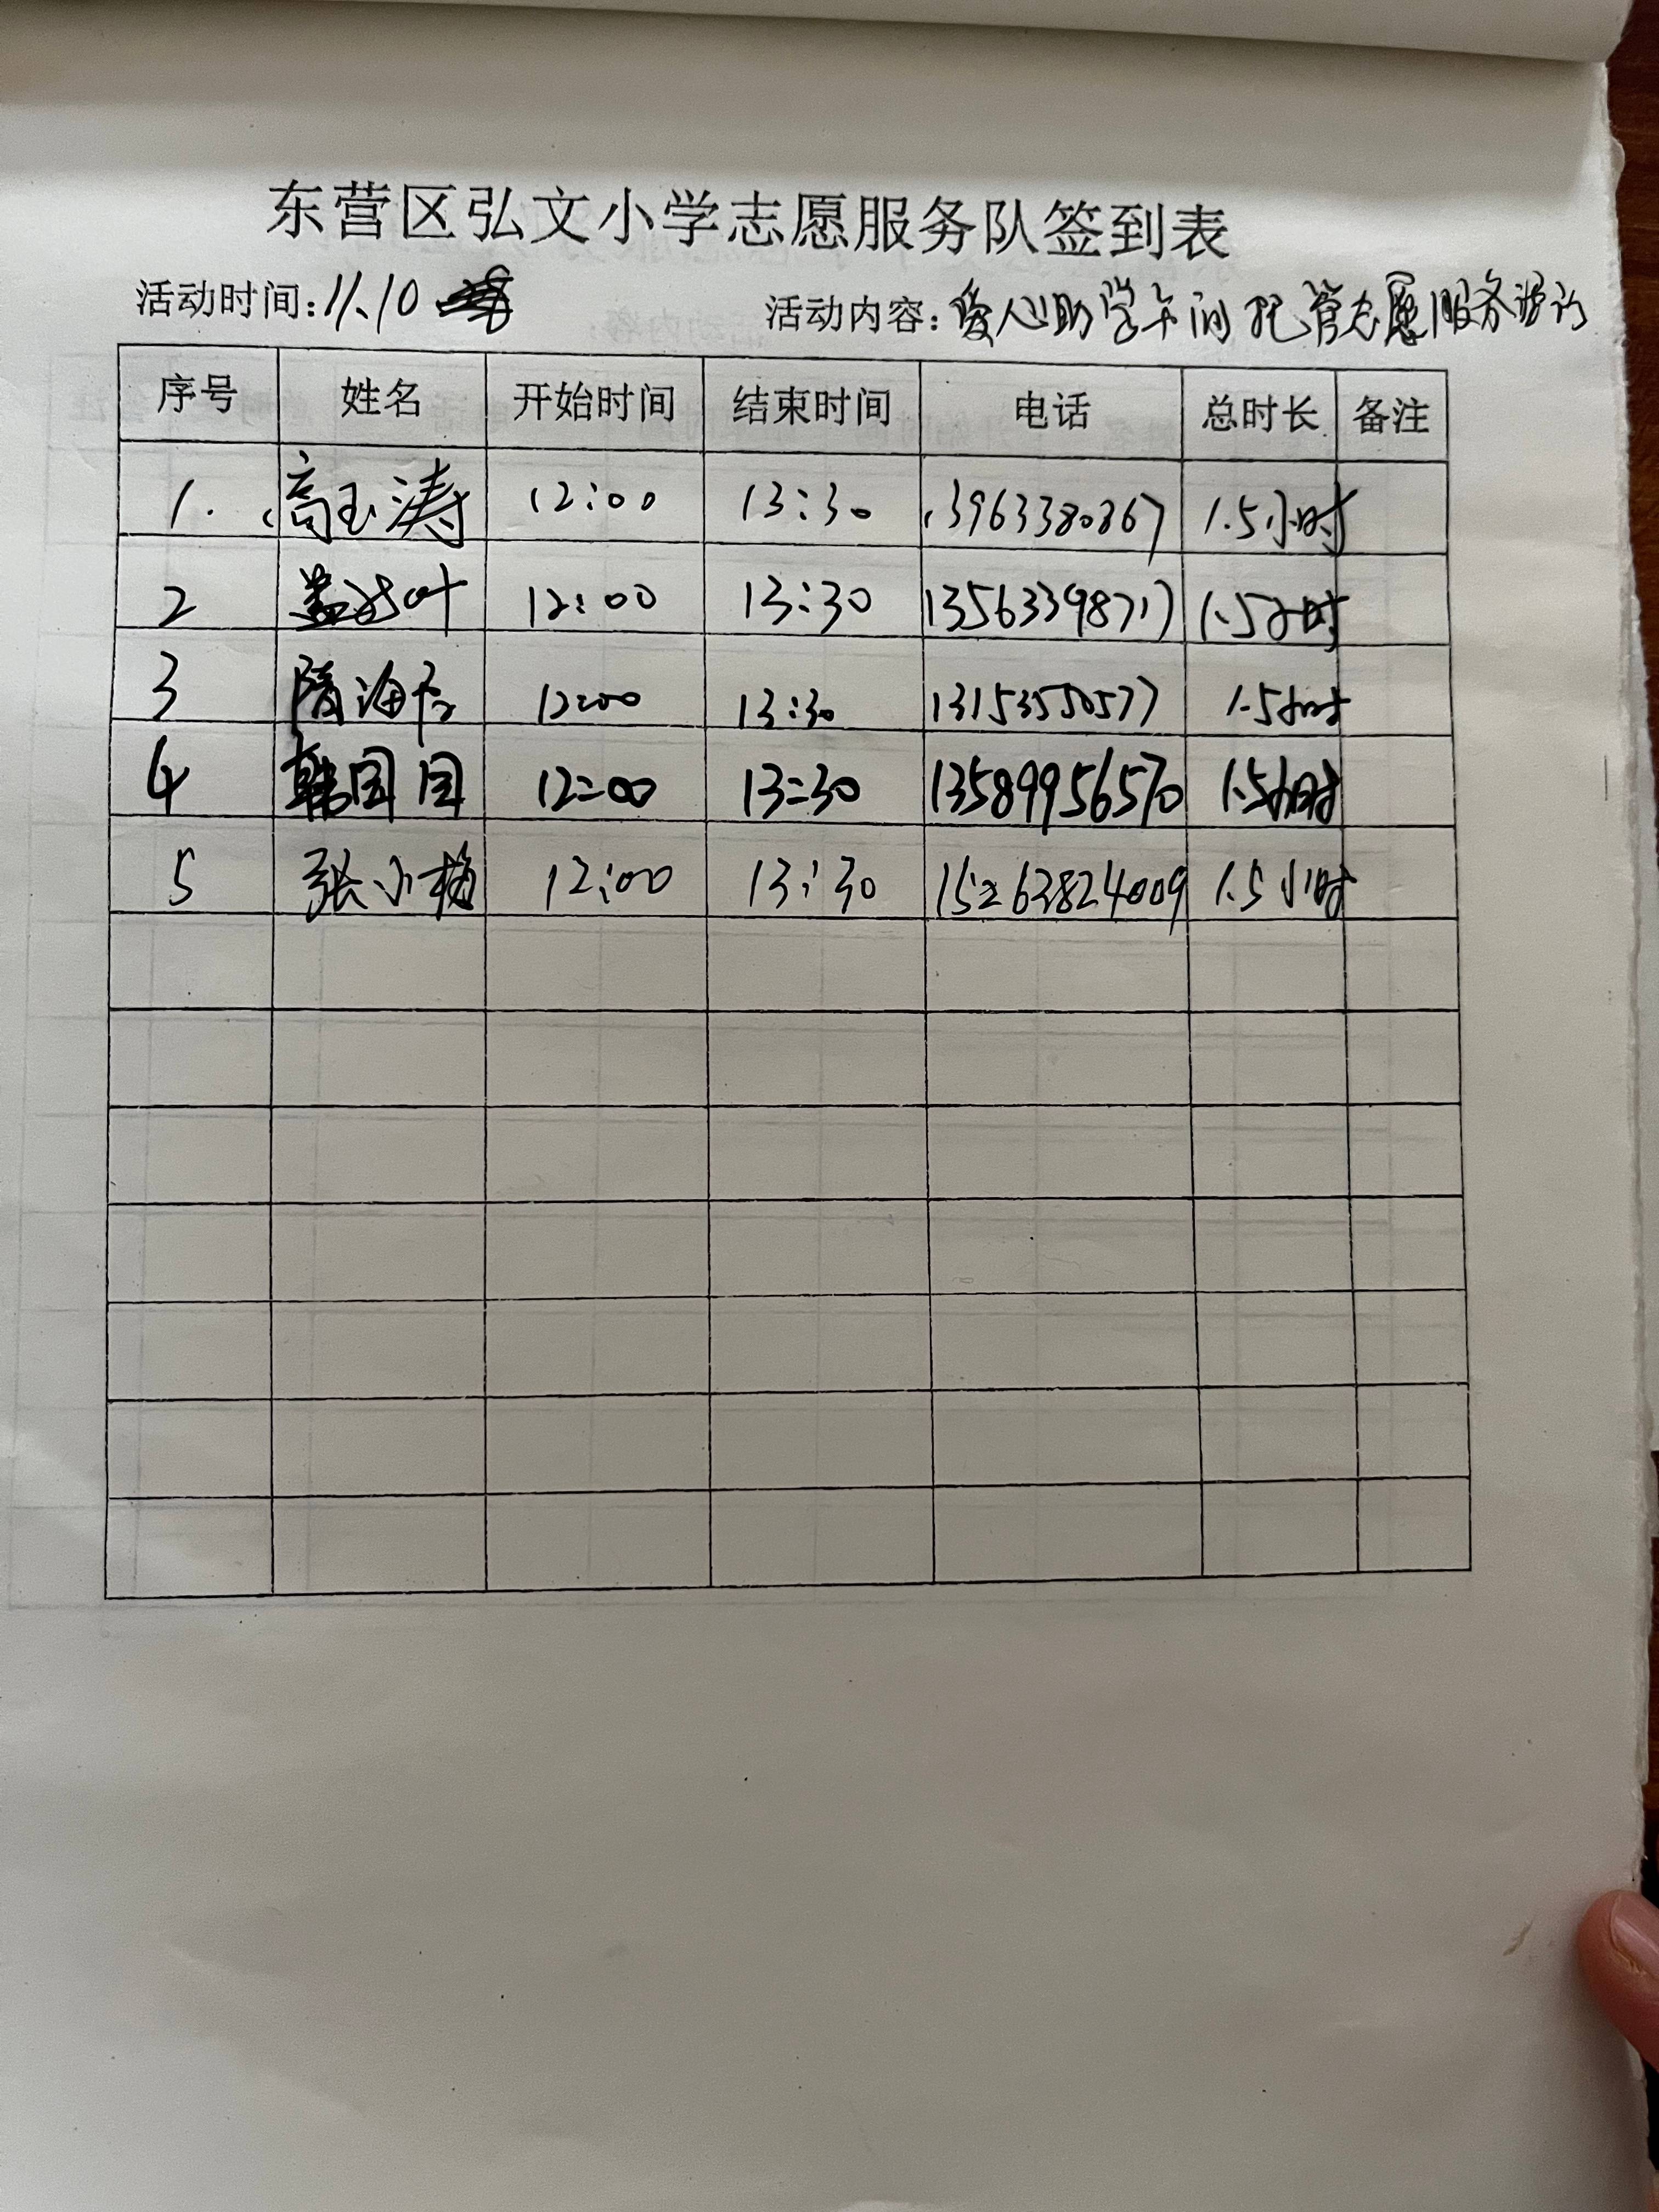 东营区弘文小学志愿服务队签到表
活动时间:11.10 活动内容:爱心助学午间托管志愿服务活动
序号 姓名 开始时间 结束时间 电话 总时长 备注
1. 高玉涛 12:00 13:30 13963380867 1.5小时
2 12:00 13:30 13563398717 1.5小时
3 隋海 12:00 13:30 13153550577 1.5小时
4 韩国国 12:00 13:30 13589956570 1.5小时
5 张小梅 12:00 13:30 15263824009 1.5小时